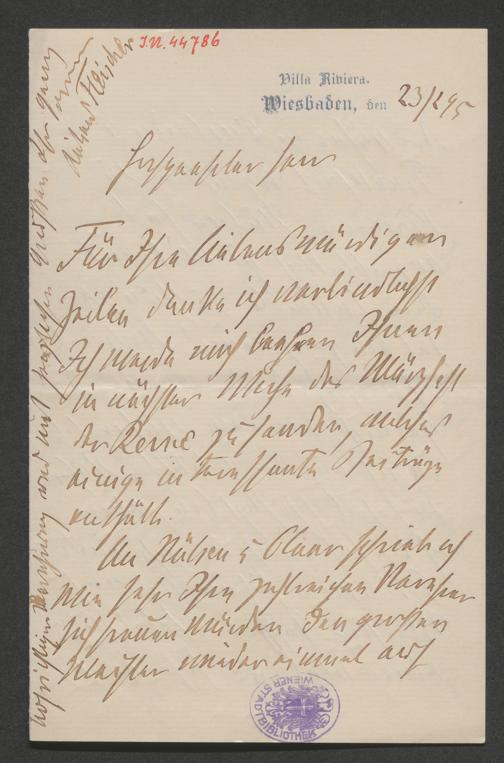 I.N. 44786
Villa Riviera.
Wiesbaden, den 23/2 95
Hochgeehrter Herr
Für Ihre liebenswürdigen
Zeilen danke ich verbindlichst
Ich werde mich beehren Ihnen
in nächster Woche das Märzheft
der Revue zu senden, welches
einige interessante Beiträge
enthält.
An Hülsen & Claar schrieb ich
wie sehr Ihre zahlreichen Verehrer
sich freuen würden den großen
Meister wieder einmal auf
aufrichtiger Verehrung und mit herzlichen Grüßen Ihr ganz
Richard Fleischer
WIENER STADTBIBLIOTHEK